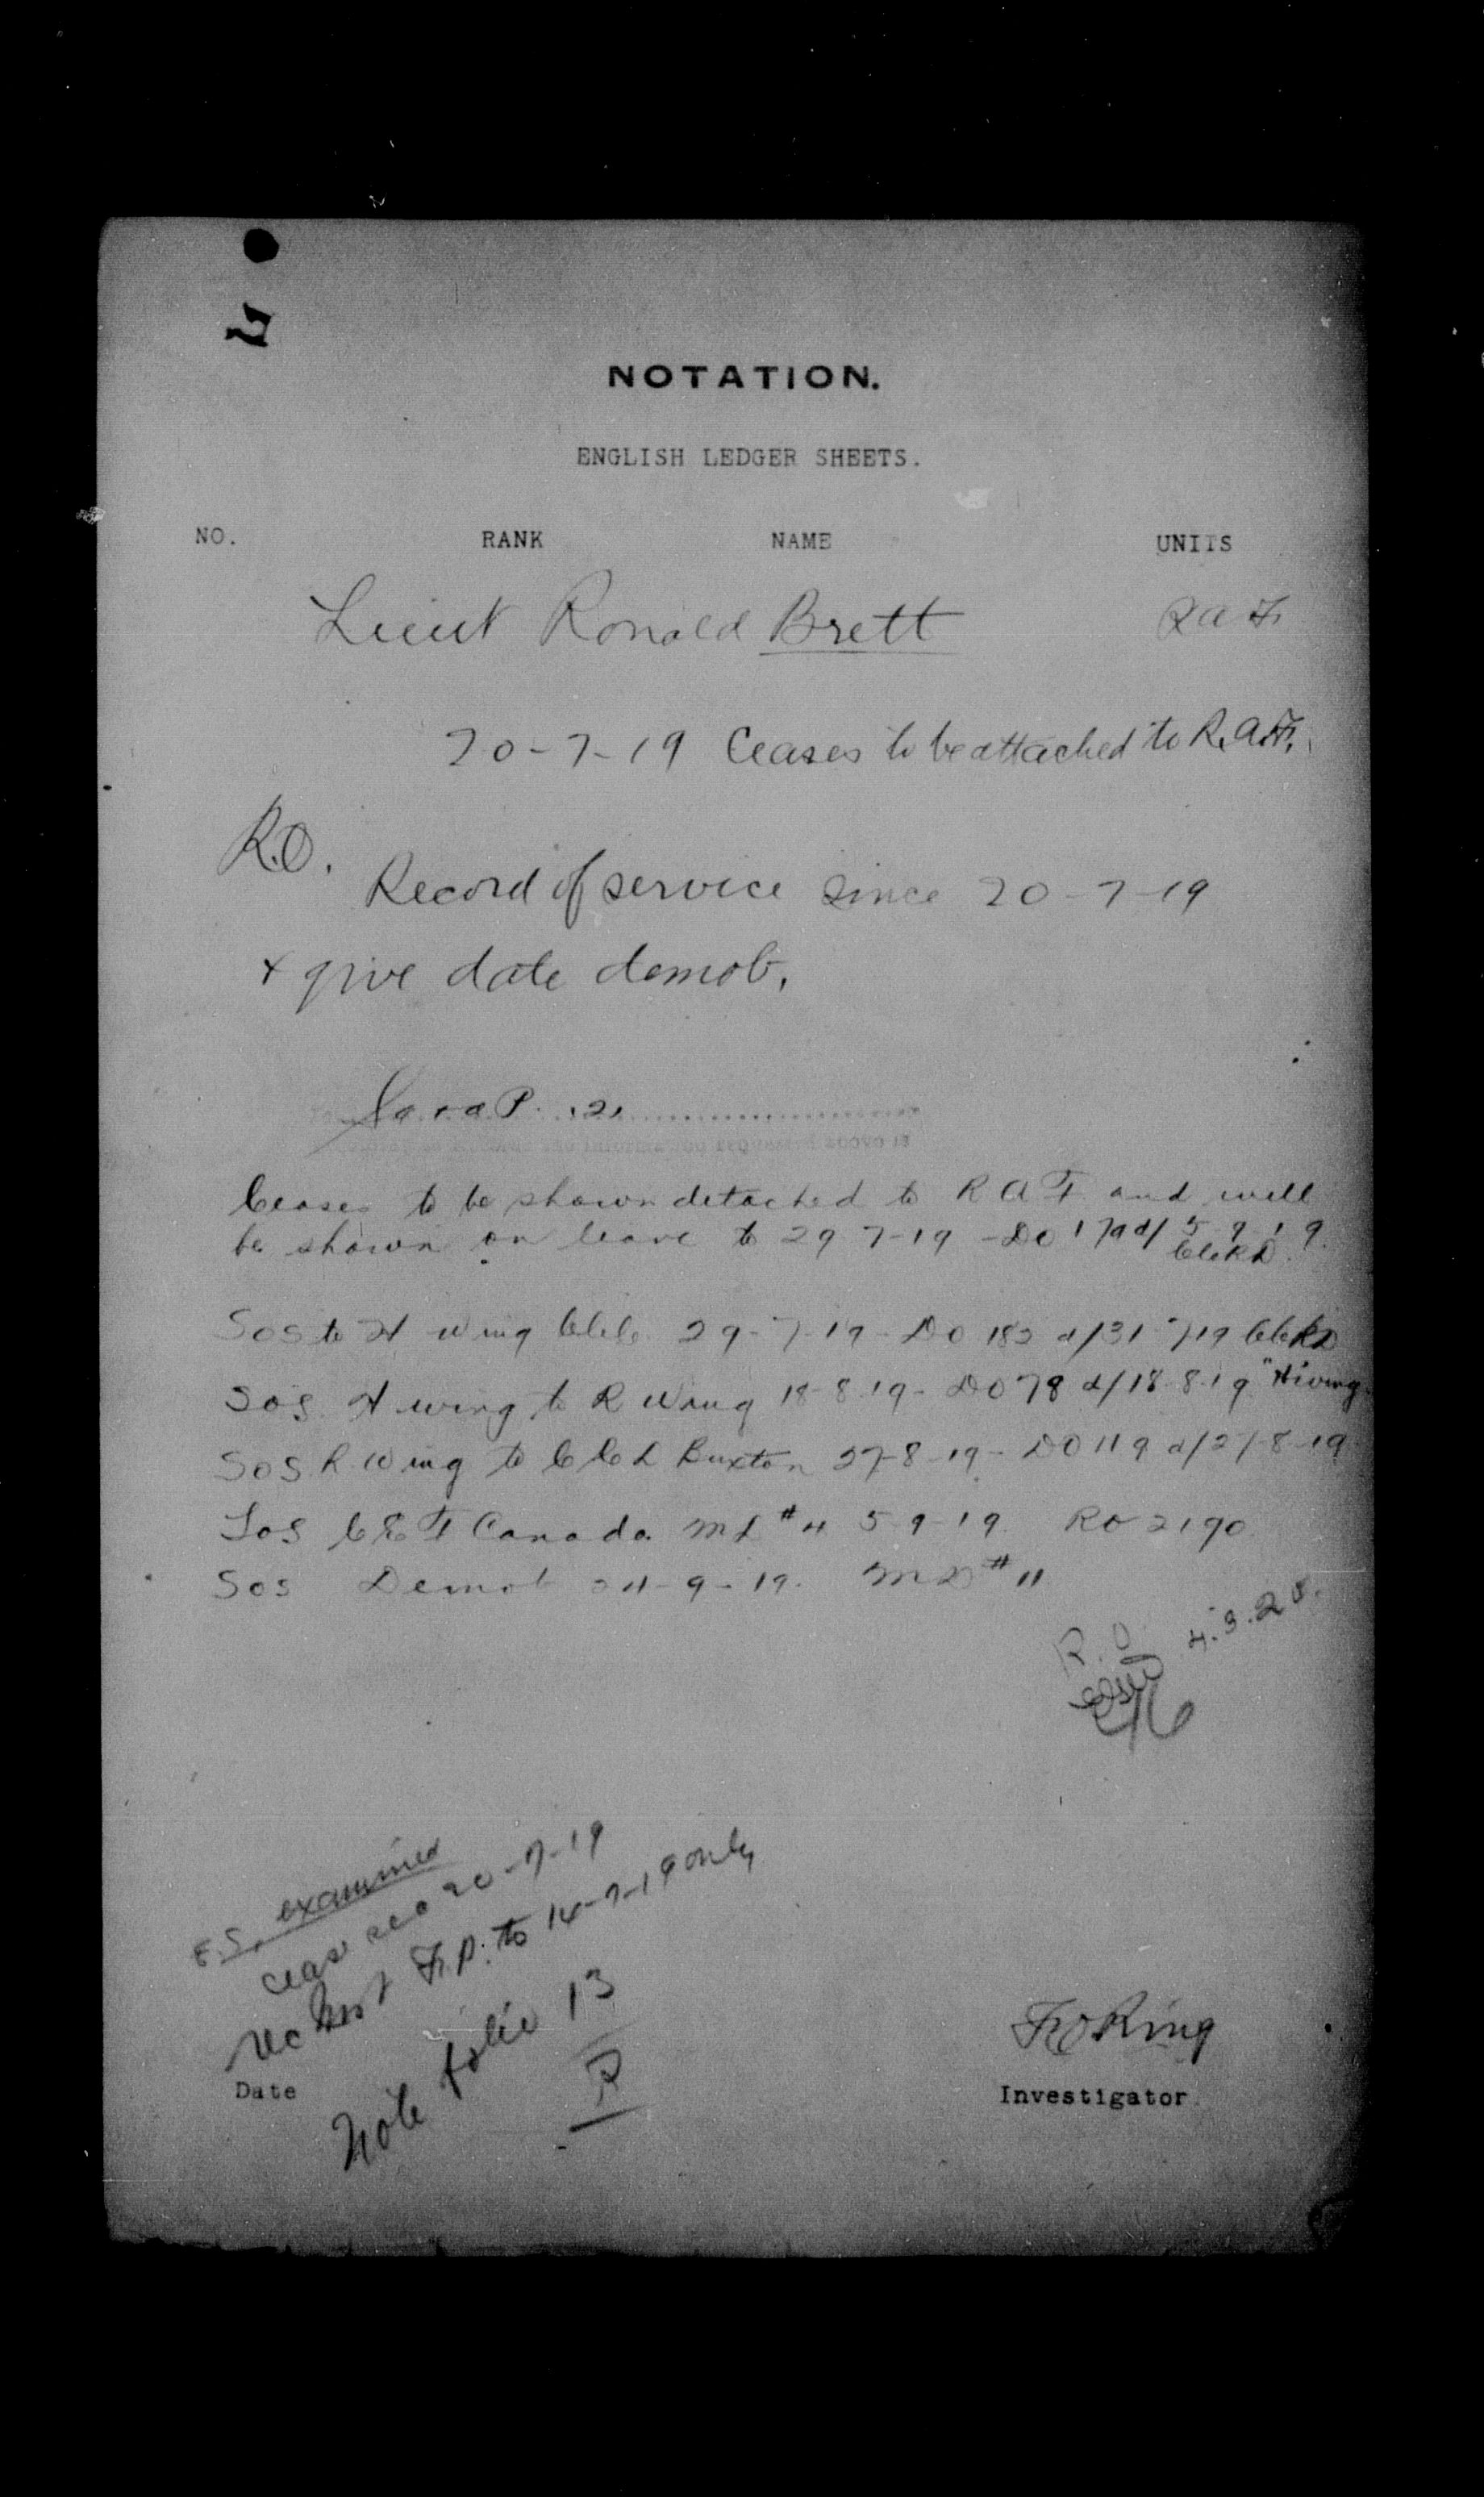 NOTATION.
ENGLISH LEDGER SHEETS.
NO. RANK NAME UNITS
Lieut Ronald Brett RAF
20-7-19 Ceases to be attached to R.A.F.
R.O.
Record of service since 20-7-19
& give date demob.
Ceases to be shown detached to RAF and will
be shown on leave to 29-7-19 - DO
SOS to H wing 29-7-19 - DO 182 d/31-7-19
SOS H wing to R Wing 18-8-19 - DO 78 d/18-8-19 "H wing
SOS R. Wing to Buxton 27-8-19 - DO 119 d/27-8-19
TOS CEF Canada MD #4 5-9-19 RO 2190
SOS Demob 24-9-19. MD #11
R.O. 4.3.20.
E.S. examined
20-7-19
F.P. to 14-7-19 only
Note folio 13
Date
Ring
Investigator